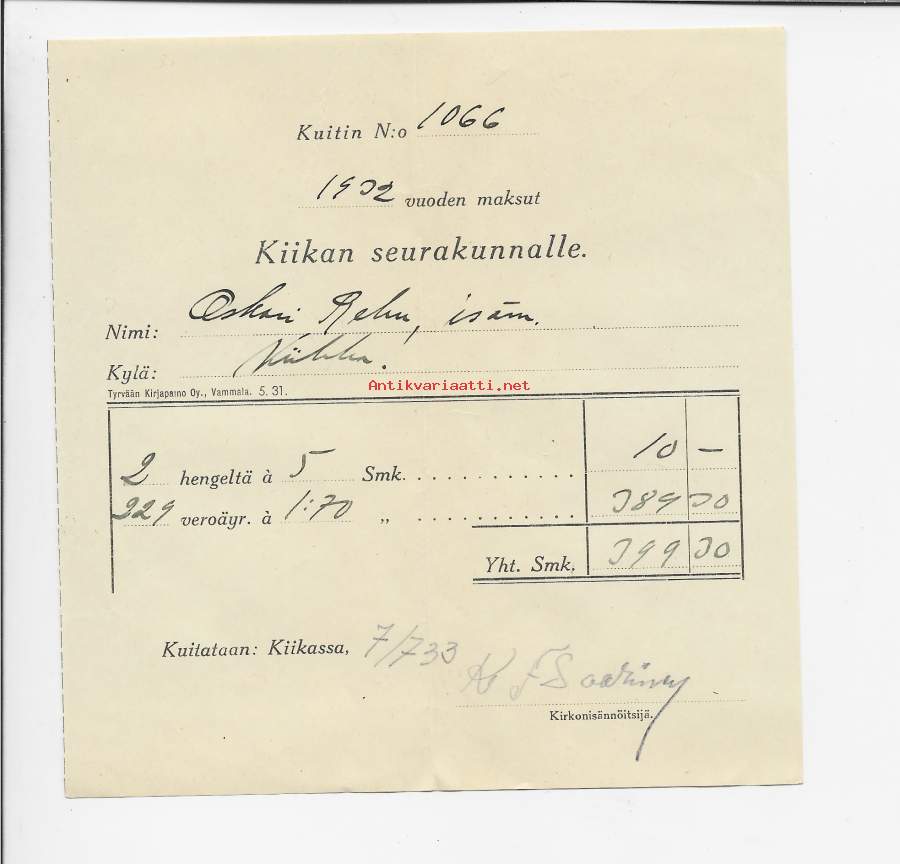 Kuitin N:o 1066
1932 vuoden maksut
Kiikan seurakunnalle.
Nimi: Oskari Rehu, isäm.
Kylä:
Antikvariaatti.net
Tyrvään Kirjapaino Oy., Vammala. 5. 31.
2 hengeltä à 5 Smk. . . . . . . . . . . . . 10 —
229 veroäyr. à 1:70 „ . . . . . . . . . . . . 389 30
Yht. Smk. 399 30
Kuitataan: Kiikassa, 7/7 33
Kirkonisännöitsijä.